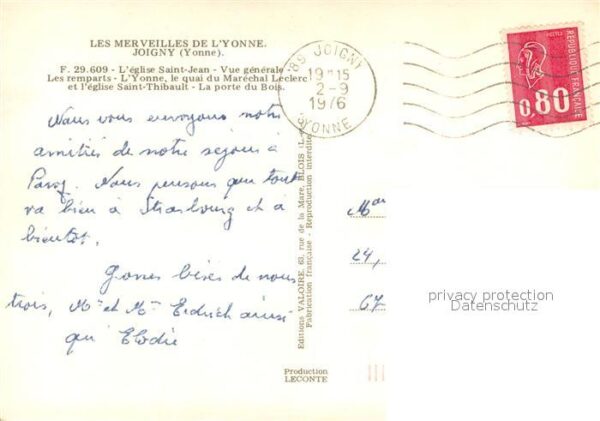 LES MERVEILLES DE L'YONNE.
JOIGNY (Yonne).
F. 29.609 - L'église Saint-Jean - Vue générale
Les remparts - L'Yonne, le quai du Maréchal Leclerc
et l'église Saint-Thibault - La porte du Bois.
89 JOIGNY
19H15
2-9
1976
YONNE
POSTES
REPUBLIQUE FRANÇAISE
0,80
Nous vous envoyons notre
amitiés de notre séjour à
Nous pensons que tout
va bien à Strasbourg et a
bientôt.
Grosses bises de nous
trois, Mr et Mme ainsi
qu' Elodie
Editions VALOIRE, 63, rue de la Mare, BLOIS
Fabrication française - Reproduction interdite
24,
67
privacy protection
Datenschutz
Production
LECONTE